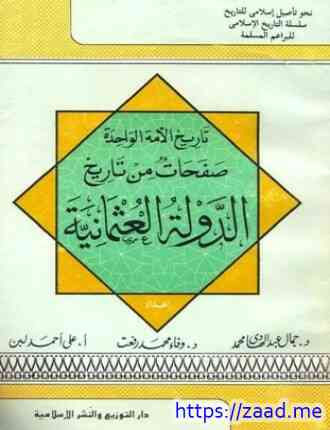 نحو تأصيل إسلامى للتاريخ
سلسلة التاريخ الإسلامى
للبراعم المسلمة
تاريخ الأمة الواحدة
صفحات من تاريخ
الدولة العثمانية
إعداد
د. جمال عبد الهادى محمد
د. وفاء محمد رفعت
أ. على أحمد لبن
دار التوزيع والنشر الإسلامية
https://zaad.me